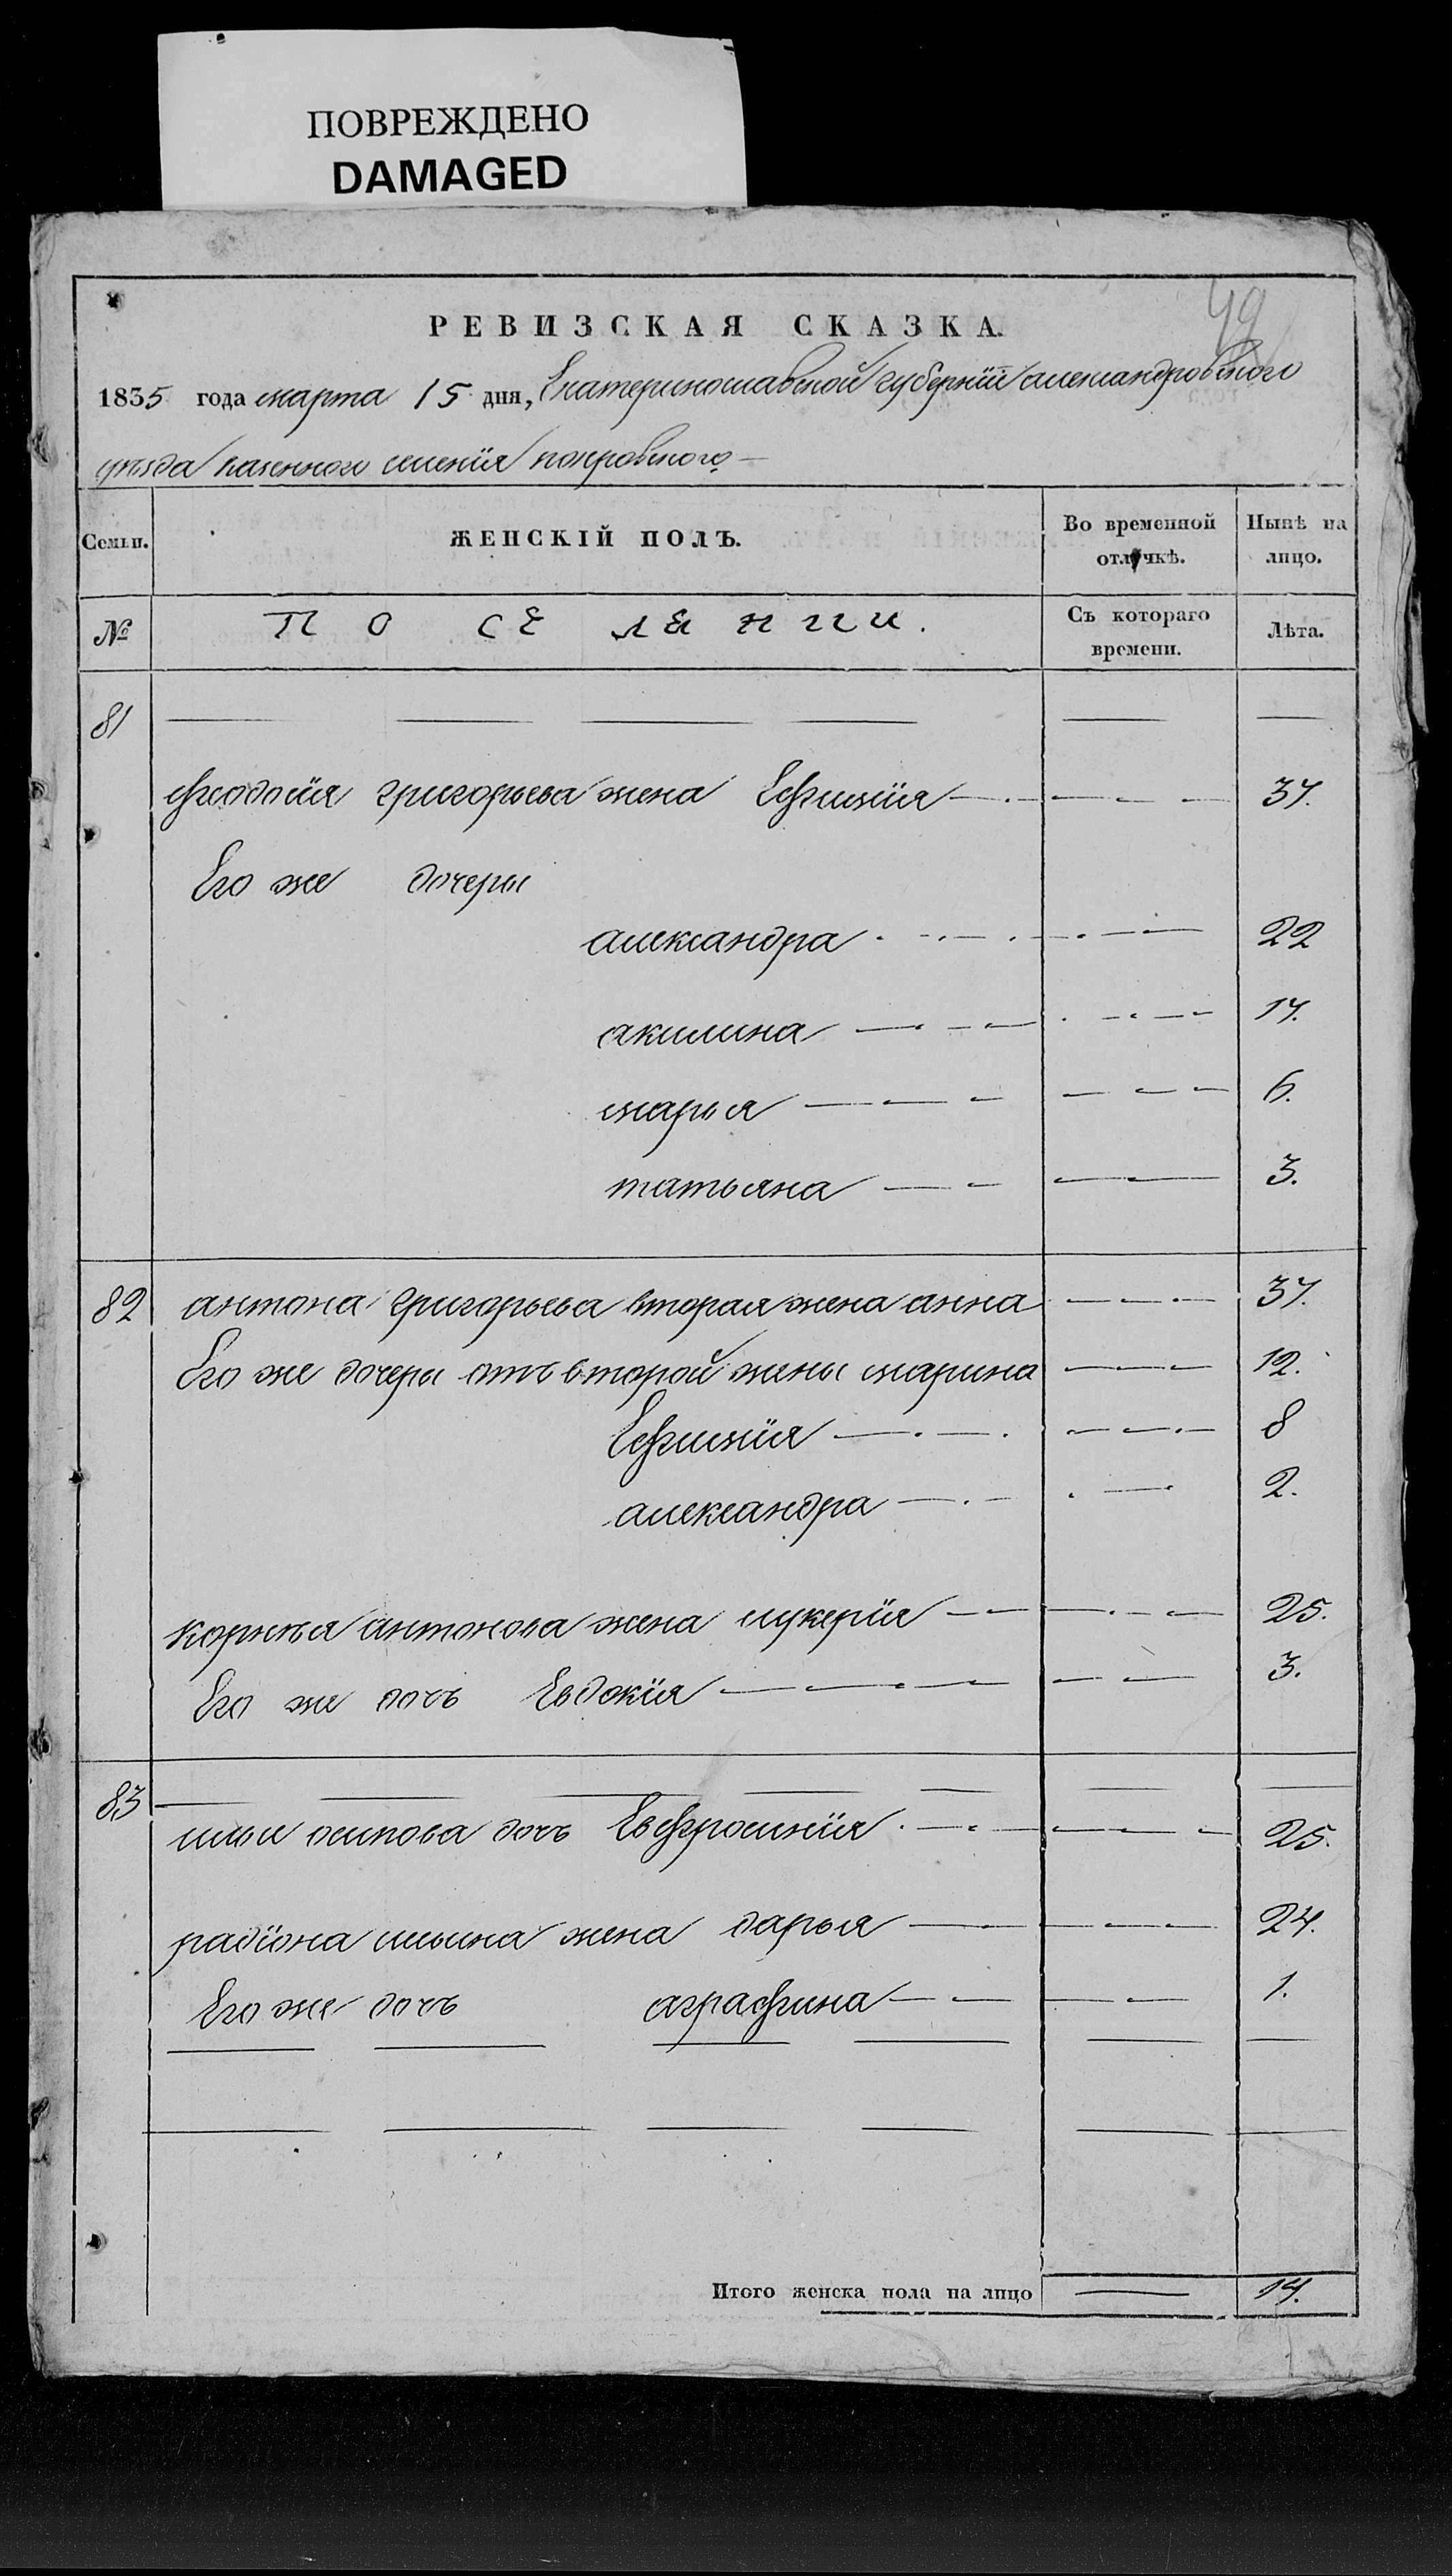 ПОВРЕЖДЕНО
DAMAGED
49
РЕВИЗСКАЯ СКАЗКА.
1835 года марта 15 дня, Екатеринославской губернїи александровского
уѣзда казенного селенїя покровского
Семьи. ЖЕНСКІЙ ПОЛЪ. Во временной отлучкѣ. Нынѣ на лицо.
№ ПОСЕЛЯНИИ. Съ котораго времени. Лѣта.
81
феодосїя григорьева жена Ефимїя 37.
Его же дочеры
александра 22
акилина 17.
марья 6.
татьяна 3.
82 антона григорьева вторая жена анна 37.
Его же дочеры отъ второй жены марина 12.
Ефимїя 8
александра 2.
корнѣя антонова жена лукерїя 25.
Его же дочь Евдокїя 3.
83
ильи осипова дочь Евфросинїя 25.
радїона ильина жена дарья 24.
Его же дочь аграфина 1.
Итого женска пола на лицо 14.